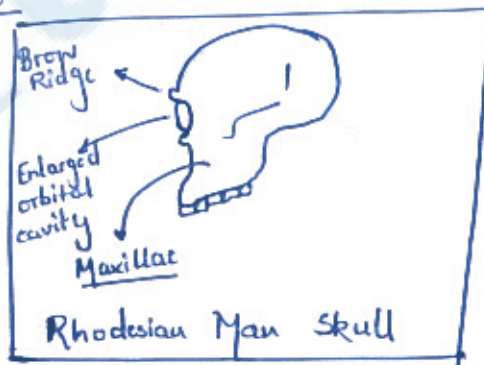 Brow
Ridge
Enlarged
orbital
cavity
Maxillae
Rhodesian Man Skull